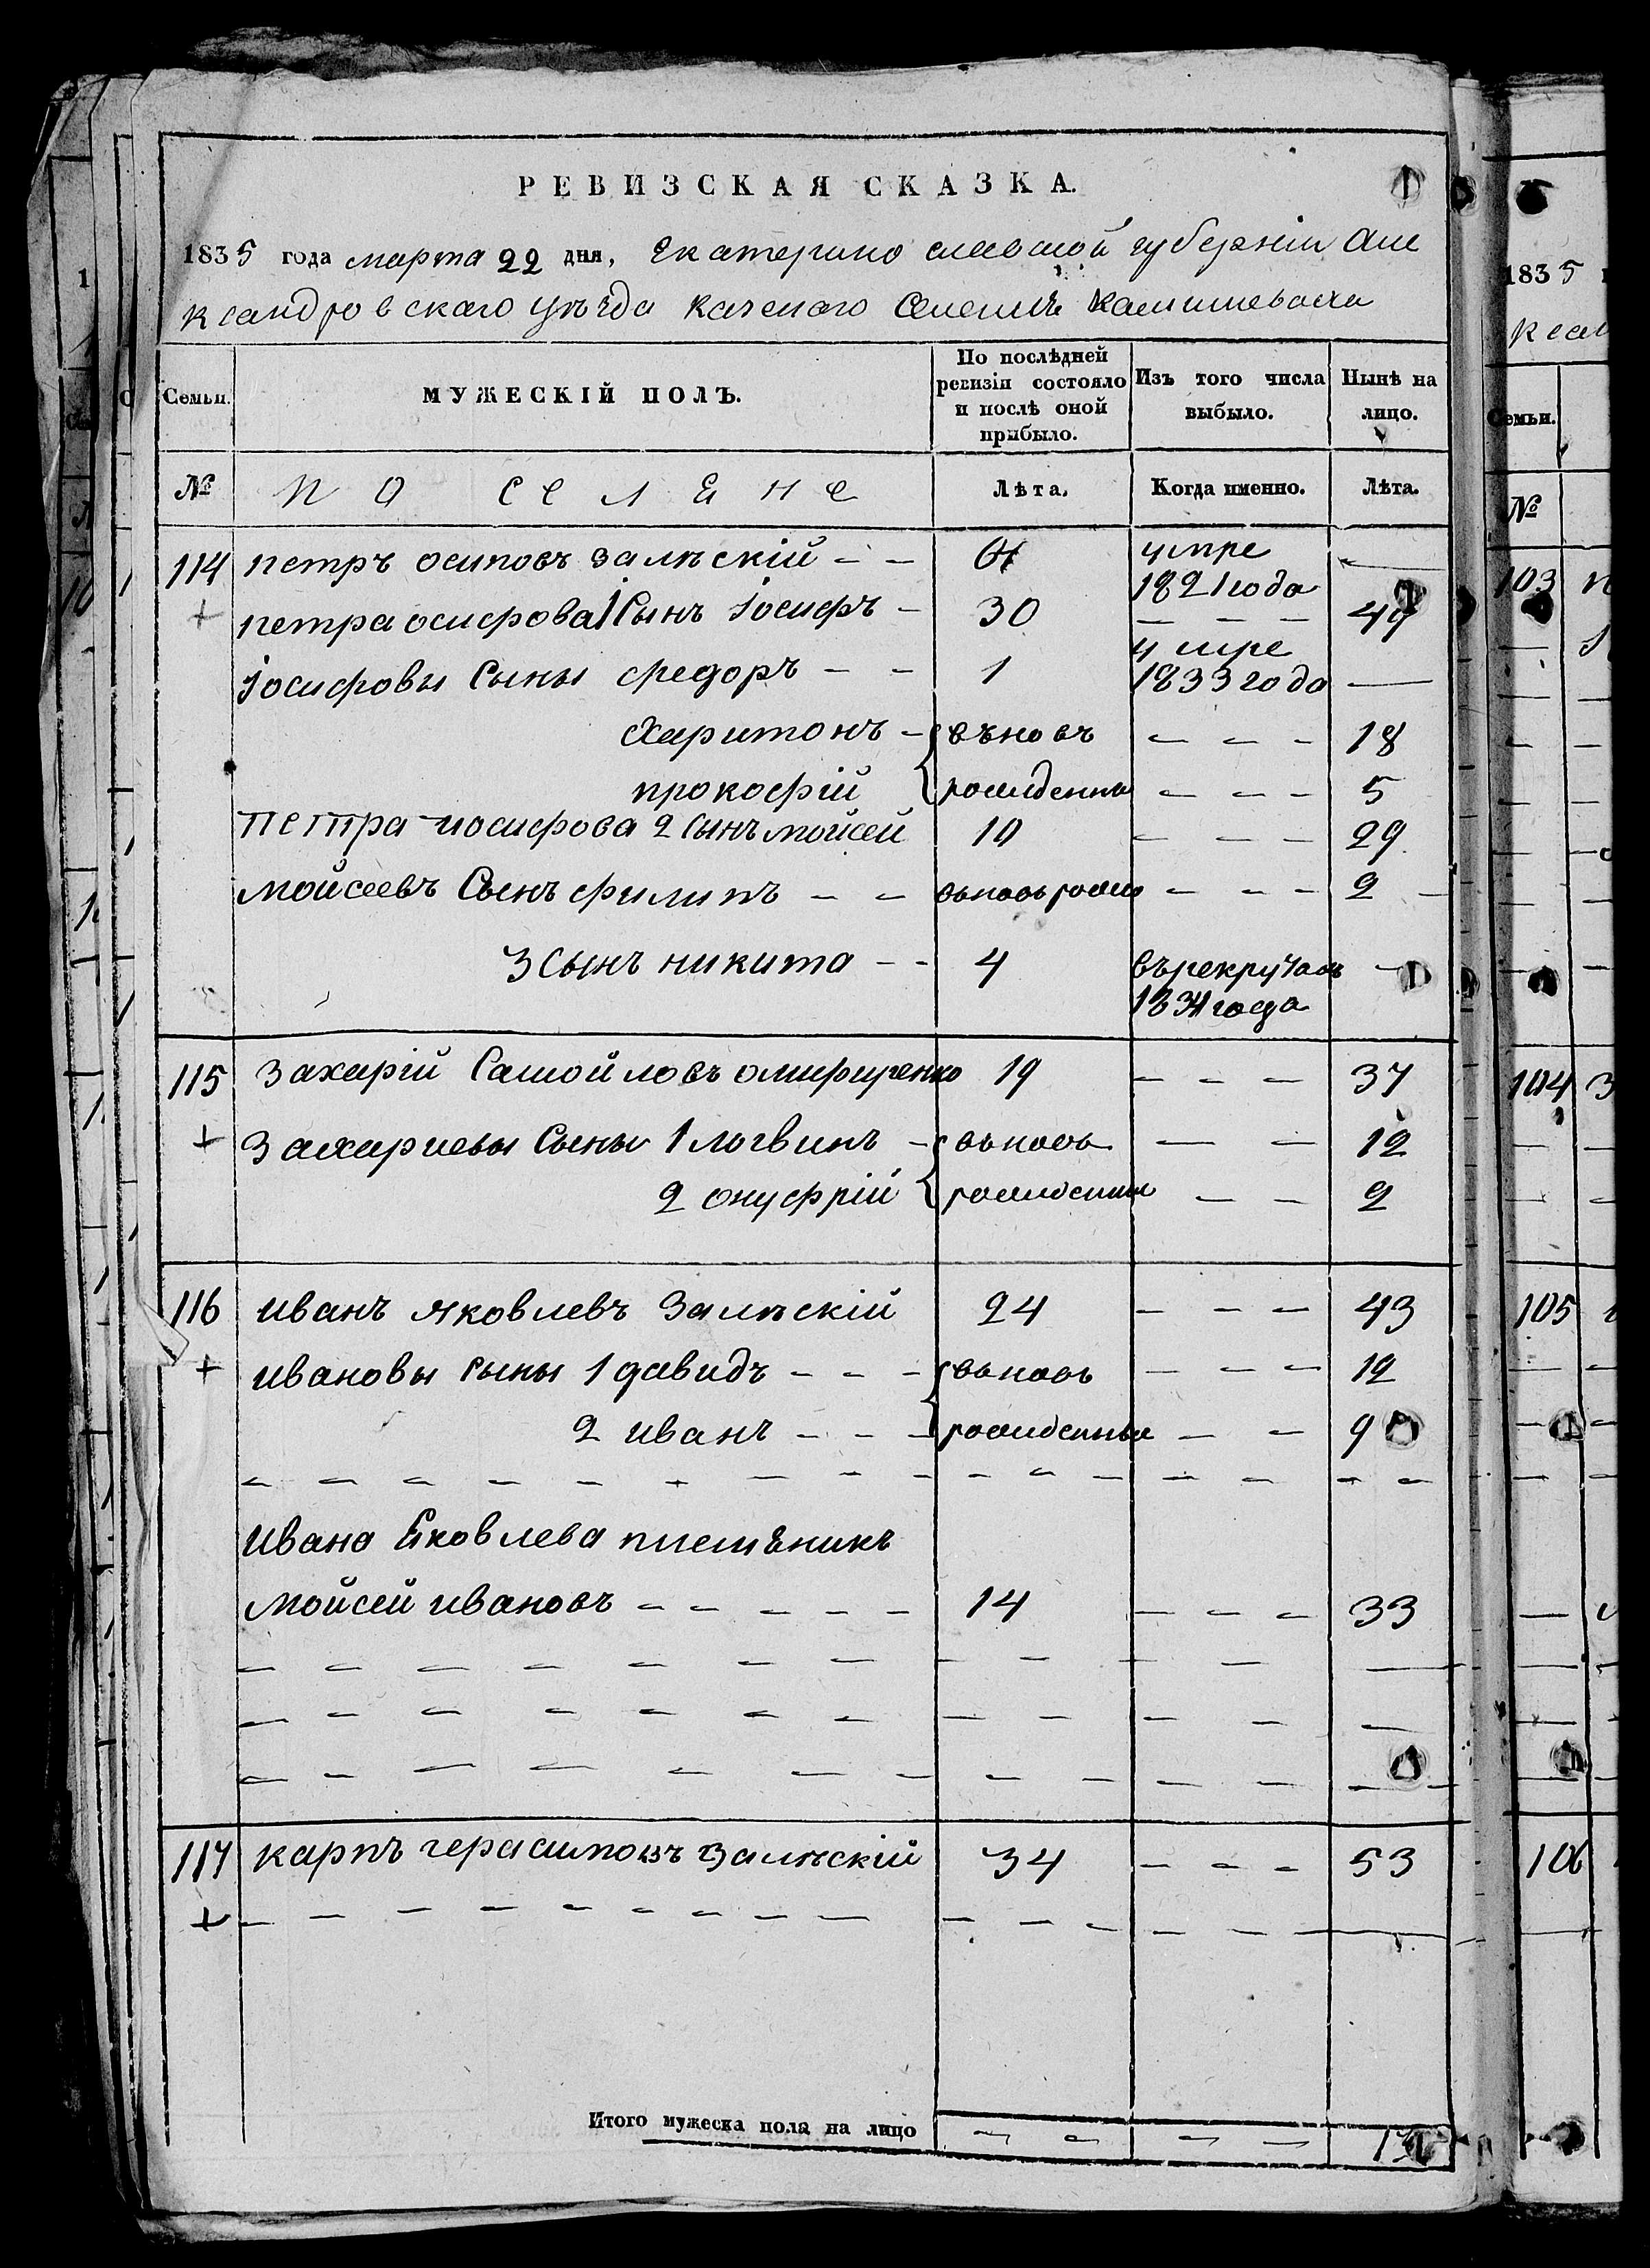 РЕВИЗСКАЯ СКАЗКА.
1835 года марта 22 дня, Екатерино славской губернiи Але
ксандровскаго уѣзда казенаго Селенiѣ Камишеваха
Семьи. МУЖЕСКIЙ ПОЛЪ. По послѣдней ревизiи состояло и послѣ оной прибыло. Изъ того числа выбыло. Нынѣ на лицо.
№ по селене Лѣта. Когда именно. Лѣта.
114 петръ осиповъ залѣскiй - - умре 1821 года
петра осифова 1 Сынъ Iосифъ - 30 - - - 49
Iосифовы Сыны федоръ - - 1 умре 1833 года —
Харитонъ - вьновь - - - 18
прокофiй рожиденны - - - 5
Петра иосифова 2 Сынъ мойсей 10 - - - 29
мойсеевъ Сынъ филипъ - - вьновь рожи - - - 2 -
3 Сынъ никита - - 4 въ рекрутахъ 1834 года -
115 Захарiй Самойловъ 19 - - - 37
+ Захариевы Сыны 1 логвинъ - вьновь — - 12
2 онуфрiй рожиденыи - - 2
116 иванъ яковлевъ Залѣскiй 24 - - - 43
+ ивановы сыны 1 давидъ - - - вьновь - - - 12
2 иванъ - - - рожиденыи - - 9
Ивана Яковлева племѣникъ
мойсей ивановъ - - - - - 14 - - - 33
117 карпъ герасимовъ Залѣскiй 34 - - - 53
+
Итого мужеска пола на лицо
1835
ксан
Семьи.
№
103
104 З
105
106